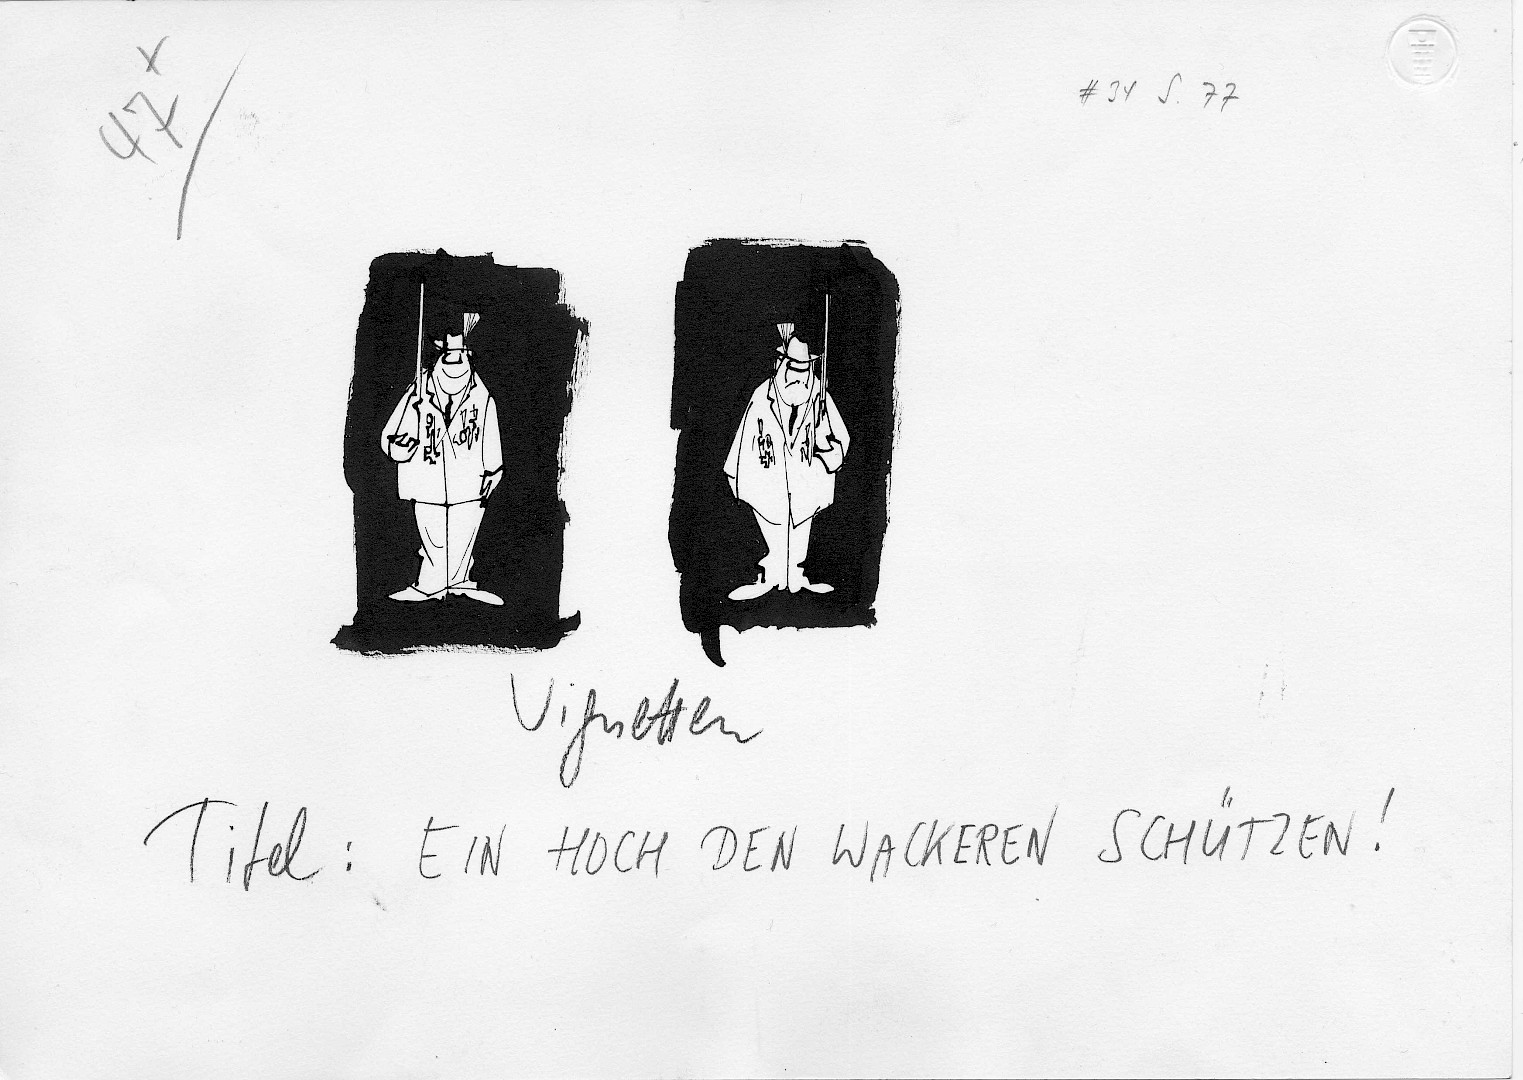 47 x
# 34 S. 77
Vignetten
Titel: EIN HOCH DEN WACKEREN SCHÜTZEN!